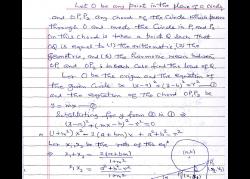 Let O be any point in the plane of a circle
and OP₁P₂ any chord of the circle which passes
through O and meets the circle in P₁ and P₂
On this chord is taken a point Q such that
OQ is equal to (1) the arithmetic (2) the
geometric, and (3) the harmonic mean between
OP₁ and OP₂ in each case find the locus of Q
Let O be the origin and the equation of
the given circle is (x-a)²+(y-b)²=r² ①
and the equation of the chord OP₁P₂ be
y = mx ②
Substituting for y from ② in ①
(x-a)²+(mx-b)²-r²=0
(1+m²)x² - 2(a+bm)x + a²+b²-r²
Let x₁, x₂ be the roots of the eqⁿ
x₁+x₂ = 2(a+bm) / 1+m²
x₁x₂ = a²+b²-r² / 1+m²
(a,b)
P₂
P₁